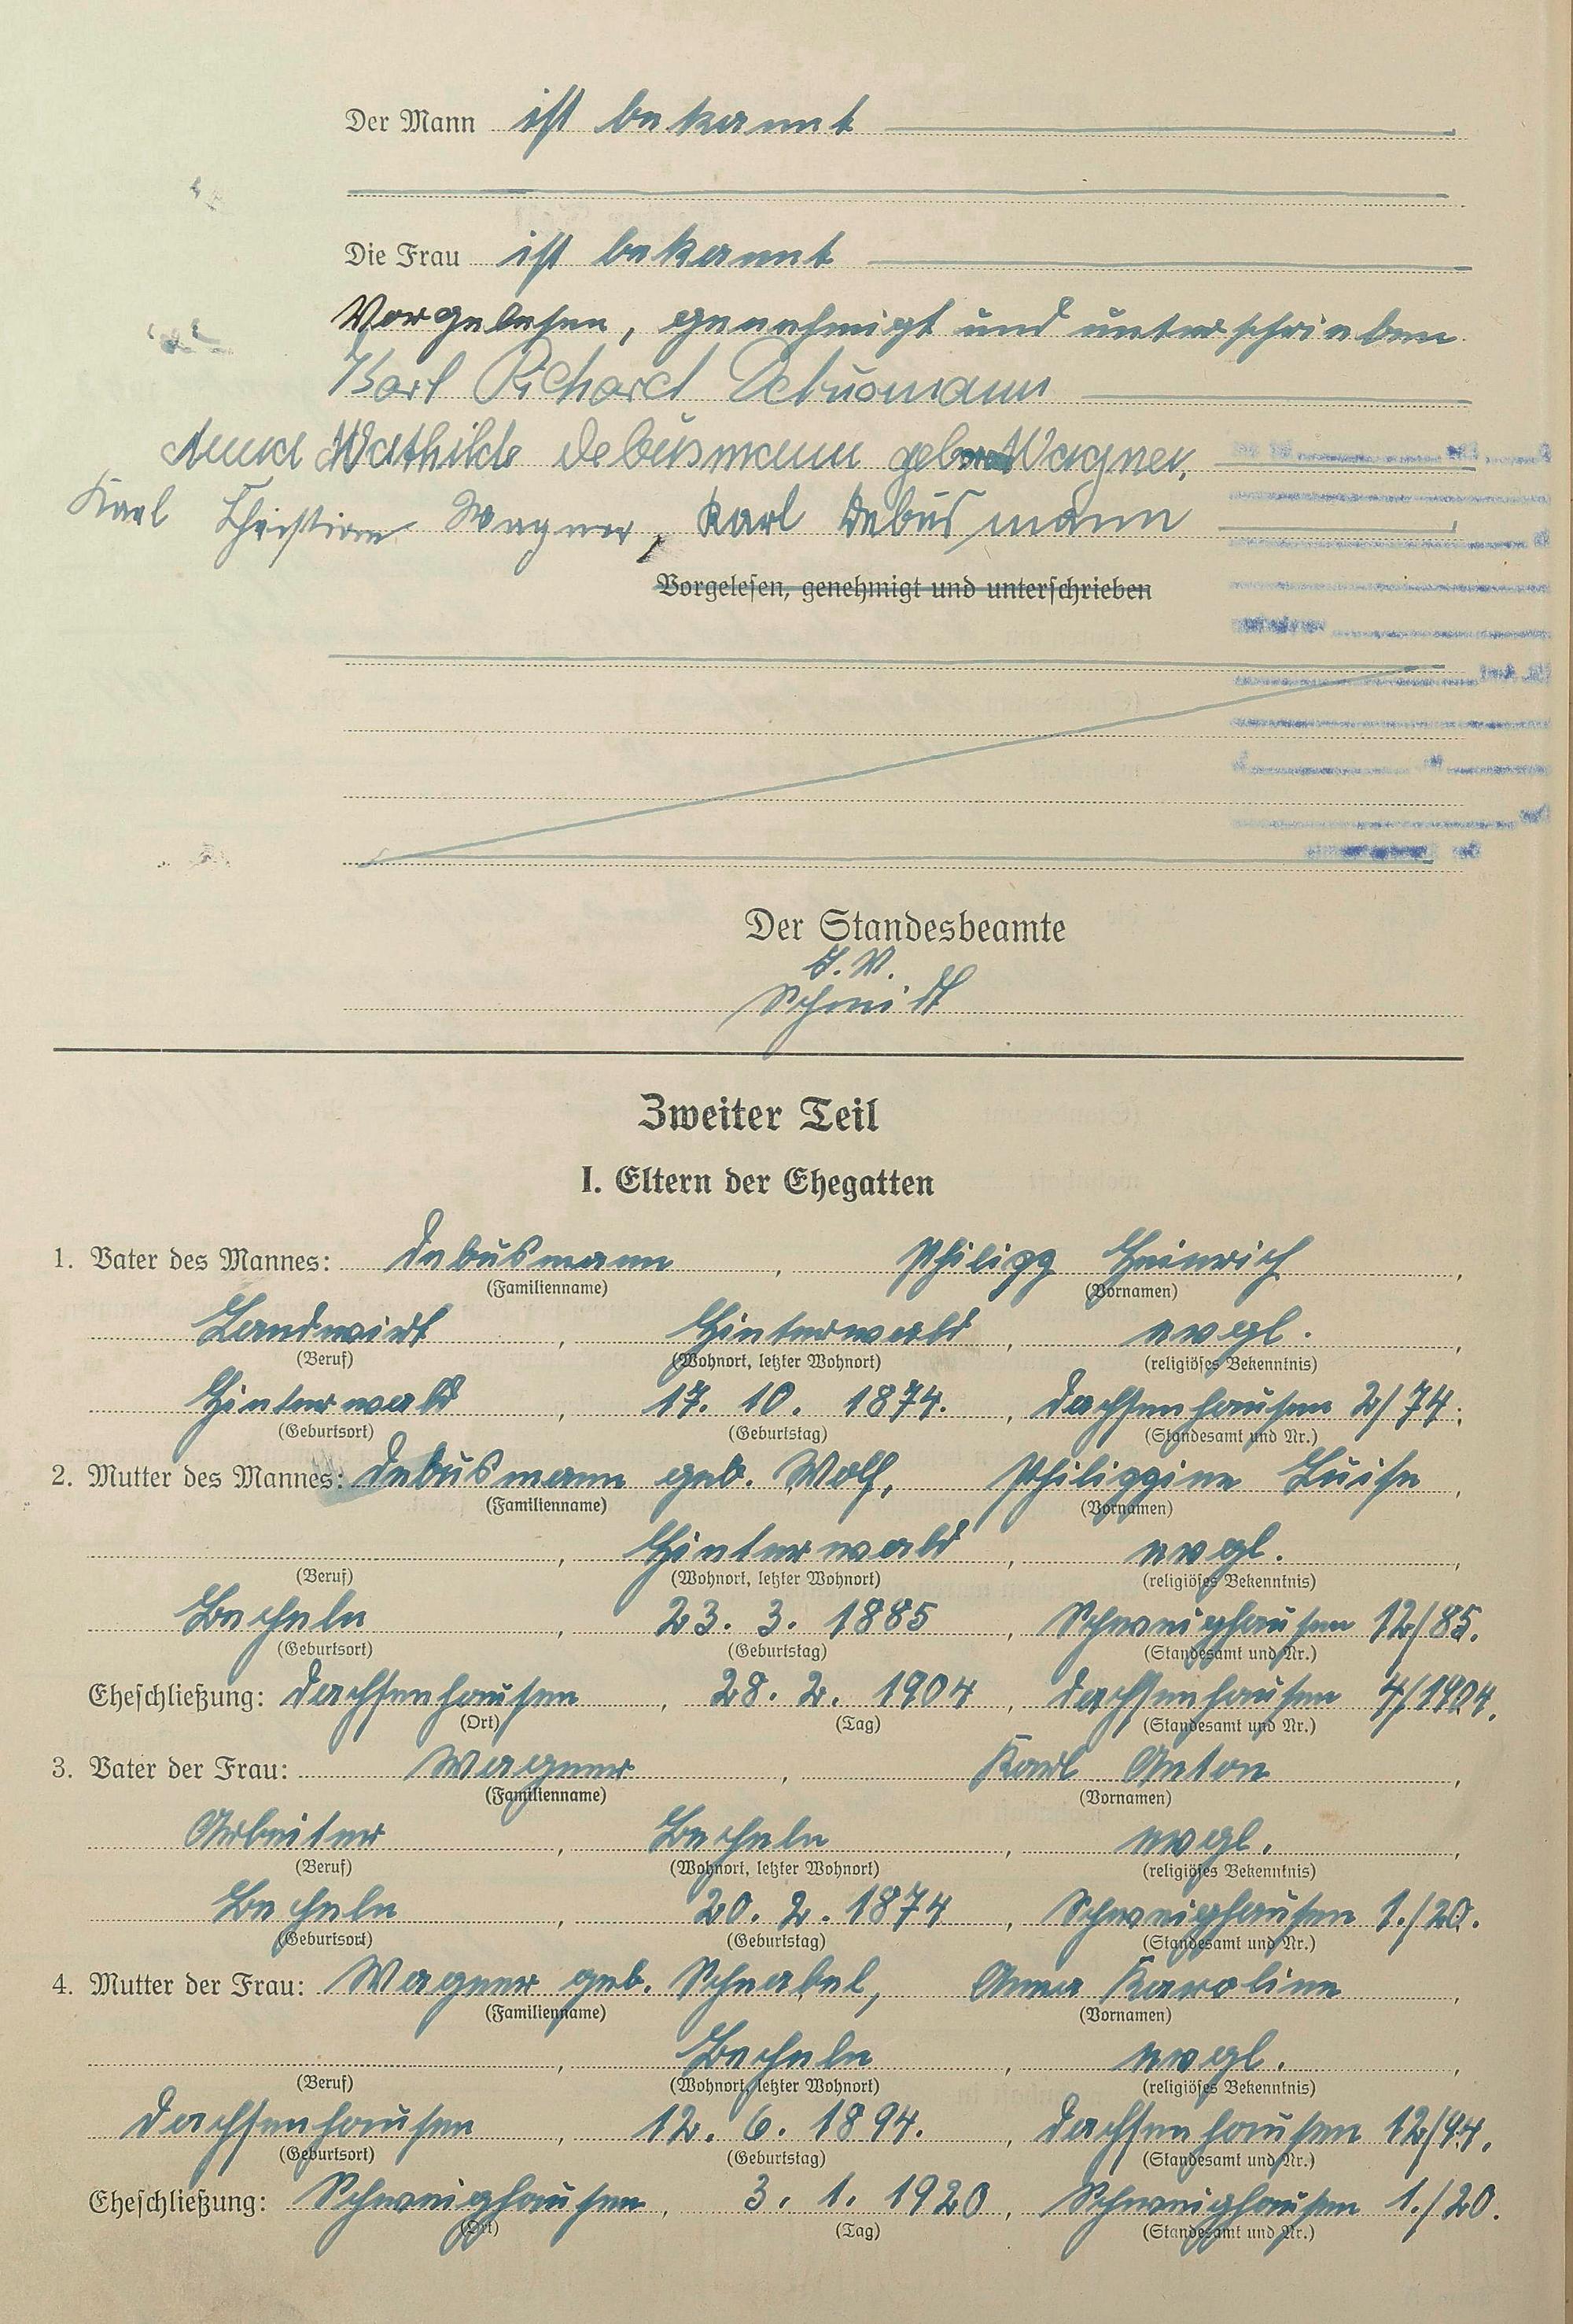 Der Mann ist bekannt
Die Frau ist bekannt
Vorgelesen, genehmigt und unterschrieben
Karl Richard Debusmann
Anna Mathilde Debusmann geborene Wagner,
Karl Christian Wagner, Karl Debusmann
Vorgelesen, genehmigt und unterschrieben
Der Standesbeamte
J. V.
Schmidt
Zweiter Teil
I. Eltern der Ehegatten
1. Vater des Mannes: Debusmann, Philipp Heinrich,
(Familienname) (Vornamen)
Landwirt, Hinterwald, evgl.,
(Beruf) (Wohnort, letzter Wohnort) (religiöses Bekenntnis)
Hinterwald, 17. 10. 1874., Dachsenhausen 2/74.
(Geburtsort) (Geburtstag) (Standesamt und Nr.)
2. Mutter des Mannes: Debusmann geb. Wolf, Philippine Luise,
(Familienname) (Vornamen)
, Hinterwald, evgl.,
(Beruf) (Wohnort, letzter Wohnort) (religiöses Bekenntnis)
Becheln, 23. 3. 1885, Schweighausen 12/85.
(Geburtsort) (Geburtstag) (Standesamt und Nr.)
Eheschließung: Dachsenhausen, 28. 2. 1904, Dachsenhausen 4/1904.
(Ort) (Tag) (Standesamt und Nr.)
3. Vater der Frau: Wagner, Karl Anton,
(Familienname) (Vornamen)
Arbeiter, Becheln, evgl.,
(Beruf) (Wohnort, letzter Wohnort) (religiöses Bekenntnis)
Becheln, 20. 2. 1874, Schweighausen 1./20.
(Geburtsort) (Geburtstag) (Standesamt und Nr.)
4. Mutter der Frau: Wagner geb. Schnabel, Anna Karoline,
(Familienname) (Vornamen)
, Becheln, evgl.,
(Beruf) (Wohnort, letzter Wohnort) (religiöses Bekenntnis)
Dachsenhausen, 12. 6. 1894., Dachsenhausen 12/94.
(Geburtsort) (Geburtstag) (Standesamt und Nr.)
Eheschließung: Schweighausen, 3. 1. 1920, Schweighausen 1./20.
(Ort) (Tag) (Standesamt und Nr.)